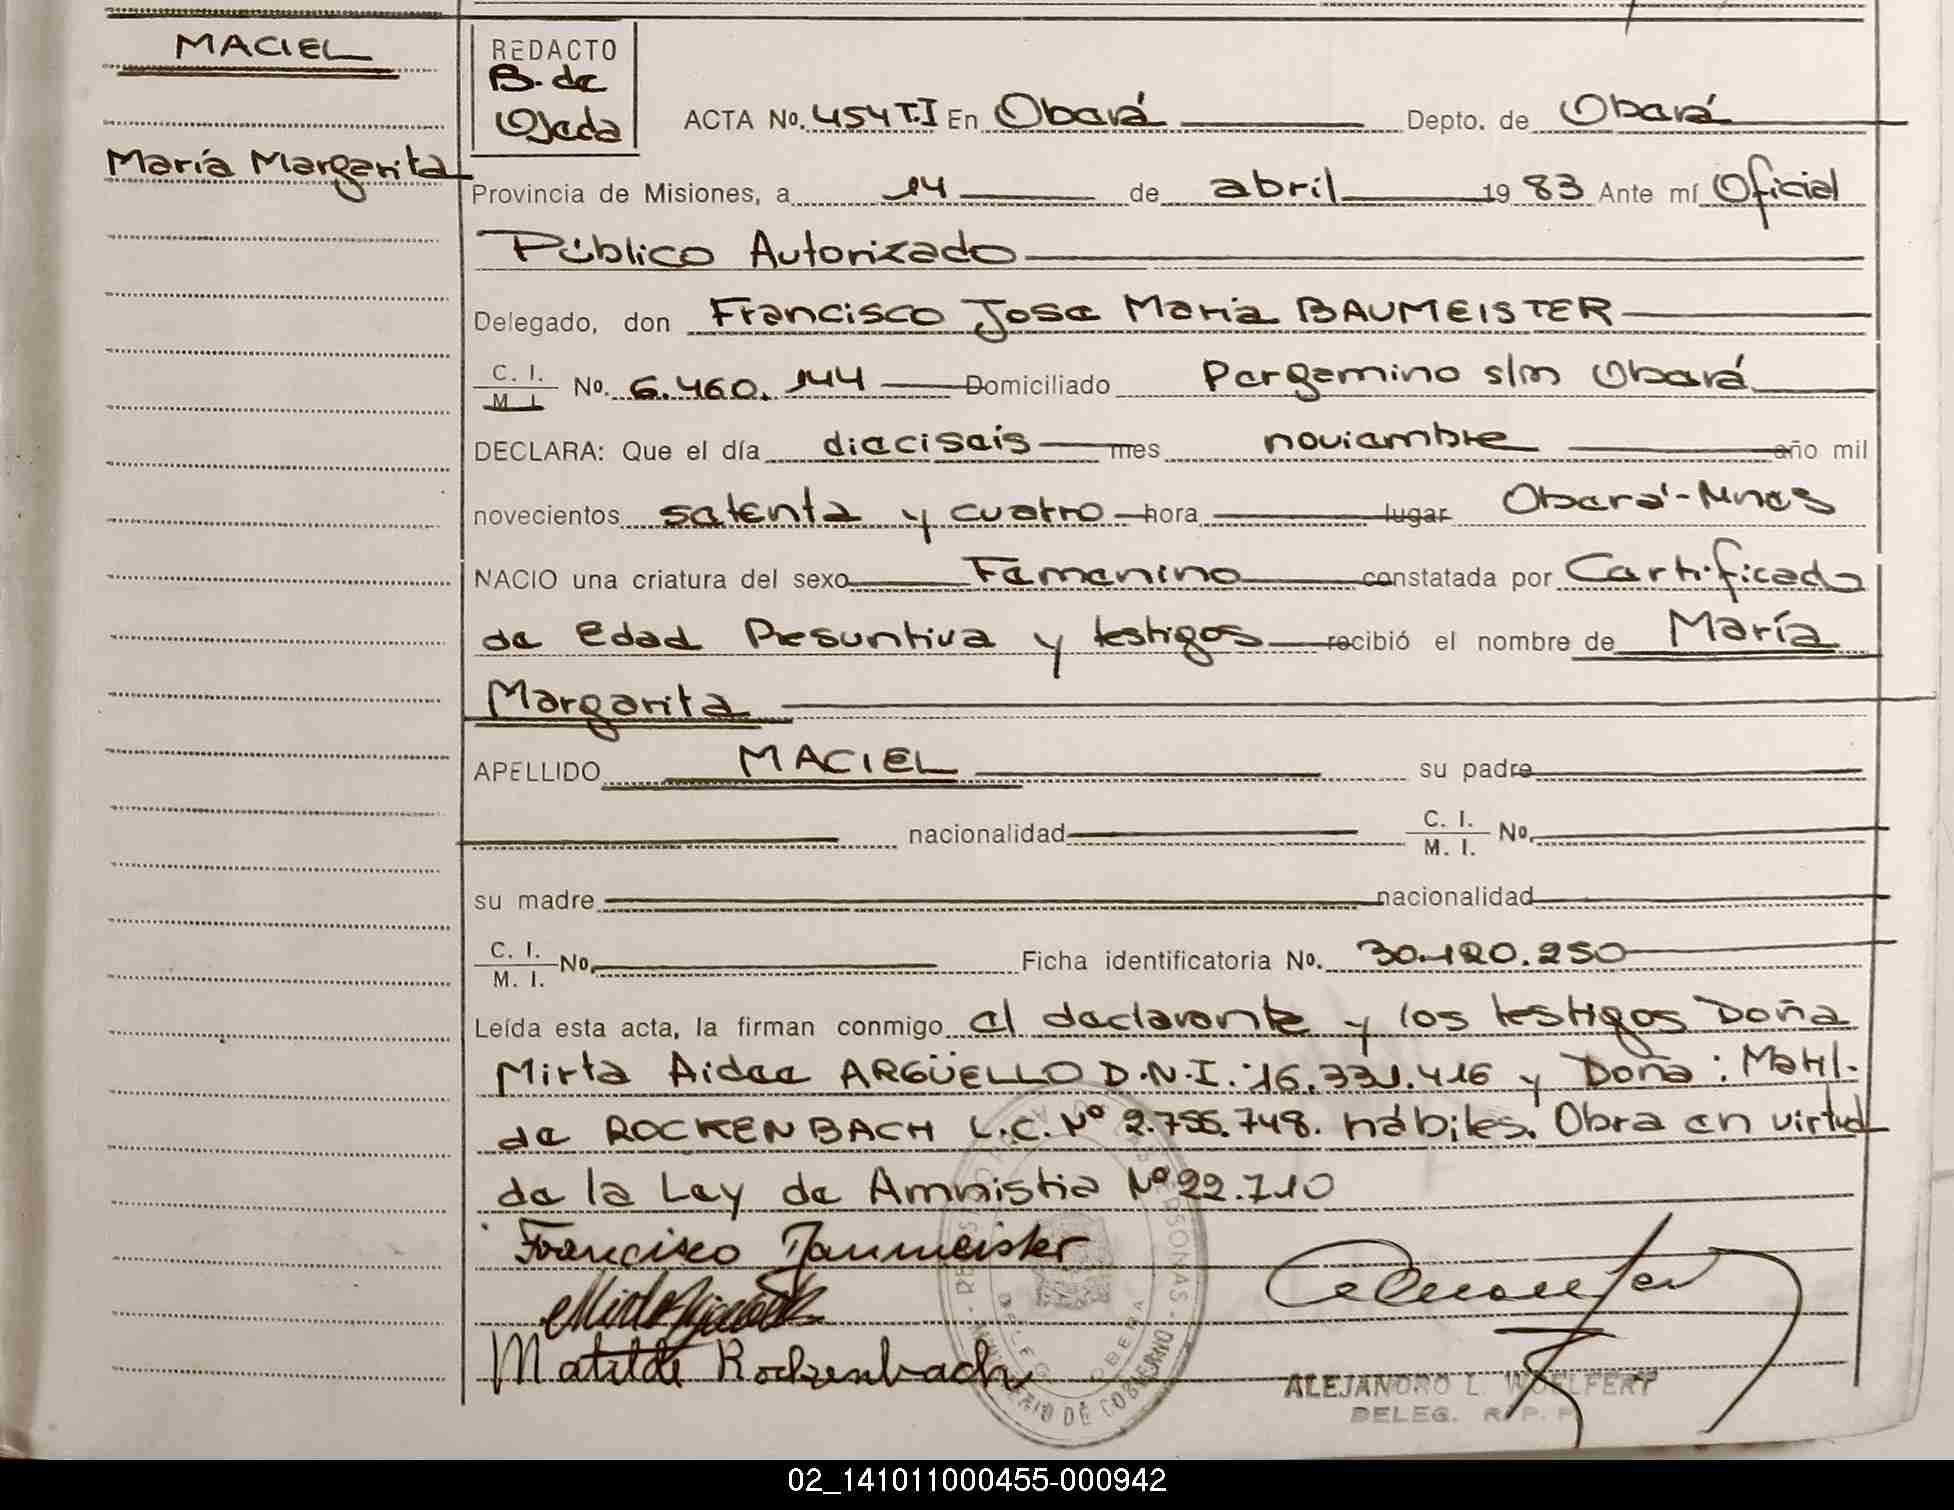 MACIEL
María Margarita
REDACTO
B. de
Ojeda
ACTA No. 454 T.I En Oberá Depto. de Oberá
Provincia de Misiones, a 14 de abril 1983 Ante mí Oficial
Público Autorizado
Delegado, don Francisco Jose Maria BAUMEISTER
C. I. M. I. No. 6.460.144 Domiciliado Pergamino s/m Oberá
DECLARA: Que el día dieciseis mes noviembre año mil
novecientos setenta y cuatro hora lugar Oberá-Mnes
NACIO una criatura del sexo Femenino constatada por Certificado
de Edad Presuntiva y testigos recibió el nombre de María
Margarita
APELLIDO MACIEL su padre
nacionalidad C. I. M. I. No.
su madre nacionalidad
C. I. M. I. No. Ficha identificatoria No. 30.120.250
Leída esta acta, la firman conmigo el declarante y los testigos Doña
Mirta Aidee ARGÜELLO D.N.I. 16.331.416 y Doña: Matil-
de ROCKENBACH L.C. Nº 2.755.748. hábiles. Obra en virtud
de la Ley de Amnistia Nº 22.710
Francisco Baumeister
Matilde Rockenbach
MINISTERIO DE GOBIERNO
DELEG. OBERA
ALEJANDRO L. WOELFERT
DELEG. R.P.P.
02_141011000455-000942